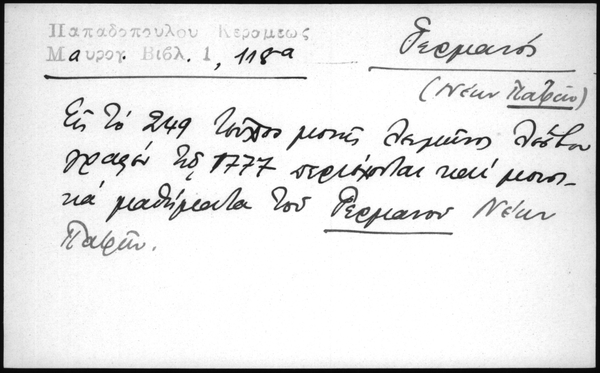 Παπαδοπουλου Κεραμεως
Μαυρογ. Βιβλ. 1, 118α
Γερμανός
(Νέων Πατρῶν)
Εἰς τό 249 μονῆς Λειμῶνος Λέσβου
γραφέν τῷ 1777 περιέχονται καί μουσι-
κά μαθήματα τοῦ Γερμανοῦ Νέων
Πατρῶν.